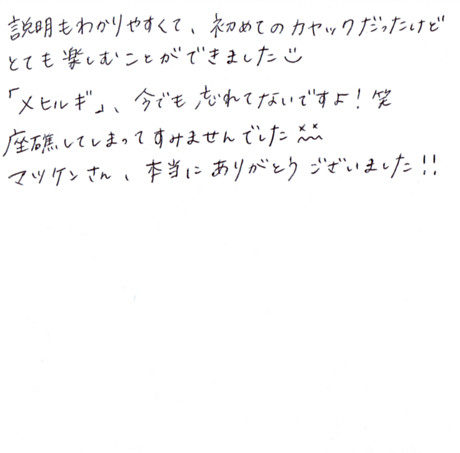 説明もわかりやすくて、初めてのカヤックだったけど
とても楽しむことができました
「メヒルギ」、今でも忘れてないですよ！笑
座礁してしまってすみませんでした
マツケンさん、本当にありがとうございました!!